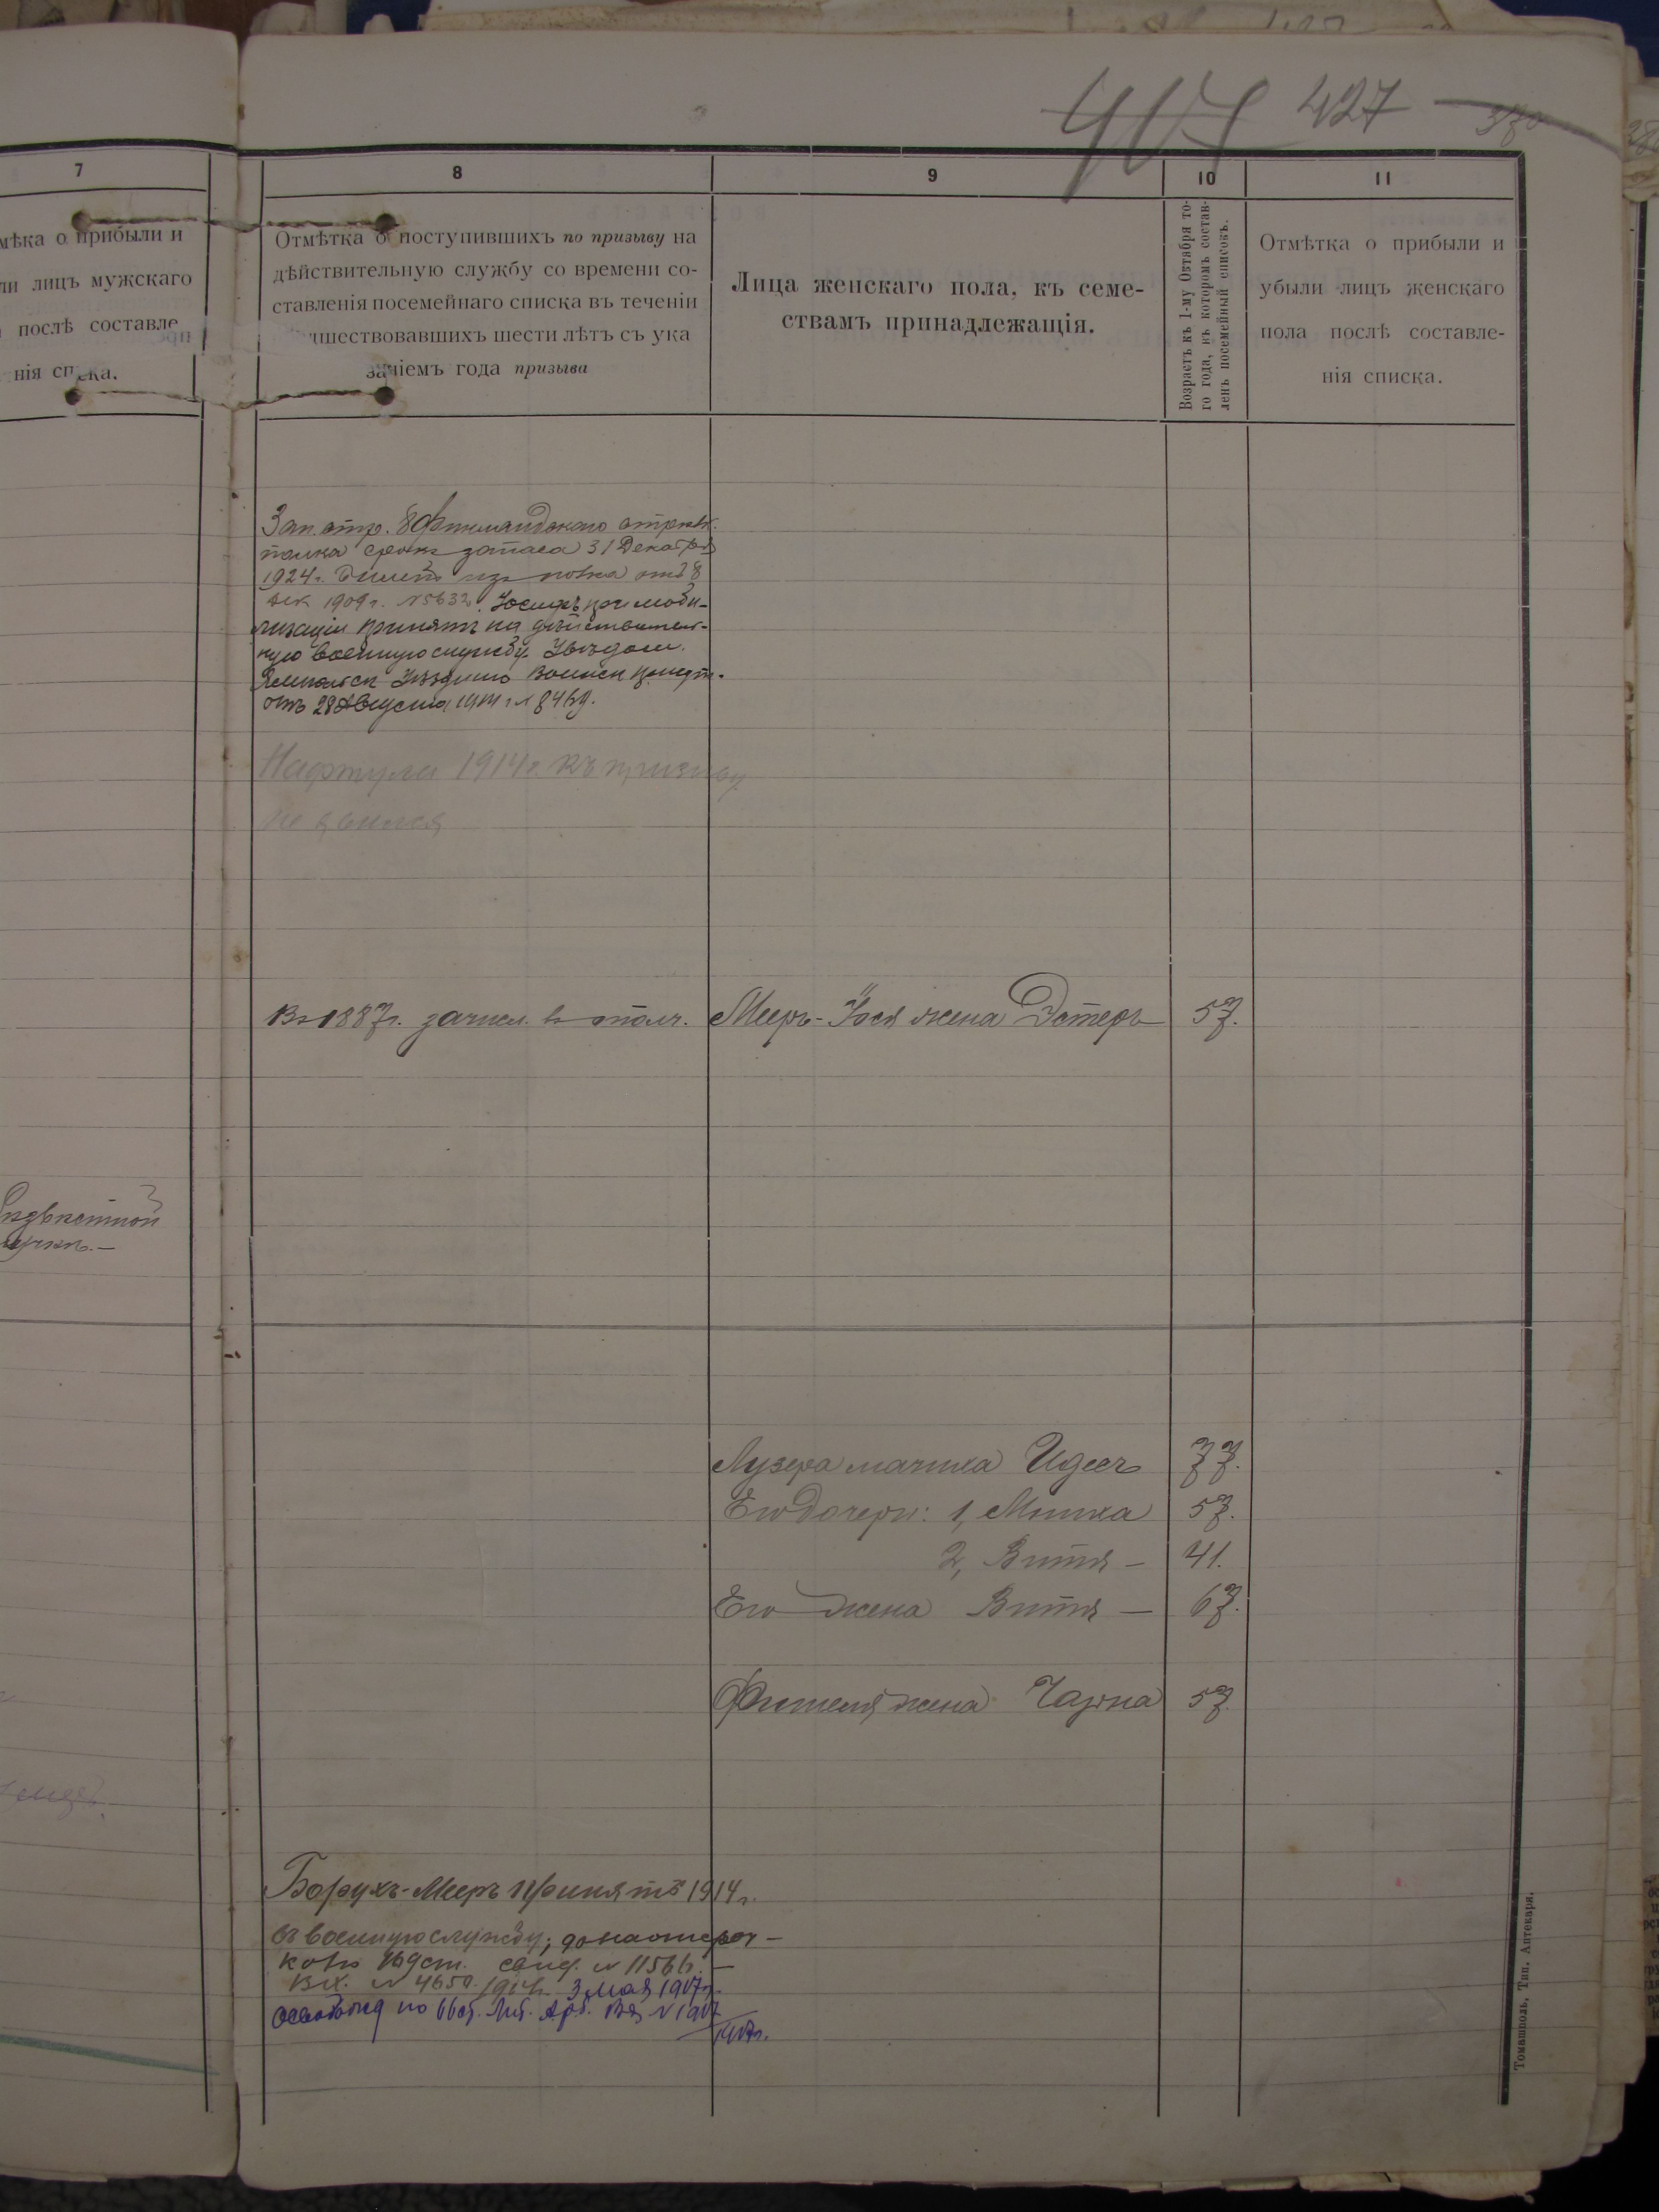 407 427
7
мѣка о прибыли и
ли лицъ мужскаго
послѣ составле
нія списка.
8
Отмѣтка о поступившихъ по призыву на
дѣйствительную службу со времени со-
ставленія посемейнаго списка въ теченіи
шествовавшихъ шести лѣтъ съ ука
заніемъ года призыва
9
Лица женскаго пола, къ семе-
ствамъ принадлежащія.
10
Возрастъ къ 1-му Октября то-
го года, къ которомъ состав-
ленъ посемейный списокъ.
11
Отмѣтка о прибыли и
убыли лицъ женскаго
пола послѣ составле-
нія списка.
Зап. стр. 8 Финляндскаго стрѣлк.
полка срокъ запаса 31 Декабря
1924 г. билетъ изъ полка отъ 8
Дек 1909 г. №5632. Іосифъ при моби-
лизаціи принятъ на дѣйствитель-
ную военную службу. Увѣдом.
Ямпольск Уѣзднаго Воинск
отъ 28 Августа 1914 г. № 8469.
Нафтула 1914 г. къ призыву
не явился
Въ 1887 г. зачисл. въ ополч.
Мееръ-Іося жена Эстеръ 57.
Лузера мачиха Идесъ 77.
Его дочери: 1, Минка 57.
2, Витя — 41.
Его жена Витя — 67.
Фишеля жена Чарна 57.
Борухъ-Мееръ принятъ 1914 г.
въ военную службу;
свид. № 11566. —
Вх. № 4650. 1914 г. 3 мая 1917 г.
по 66 ст. Лит. № 1917
1917 г.
Томашполь, Тип. Аптекаря.